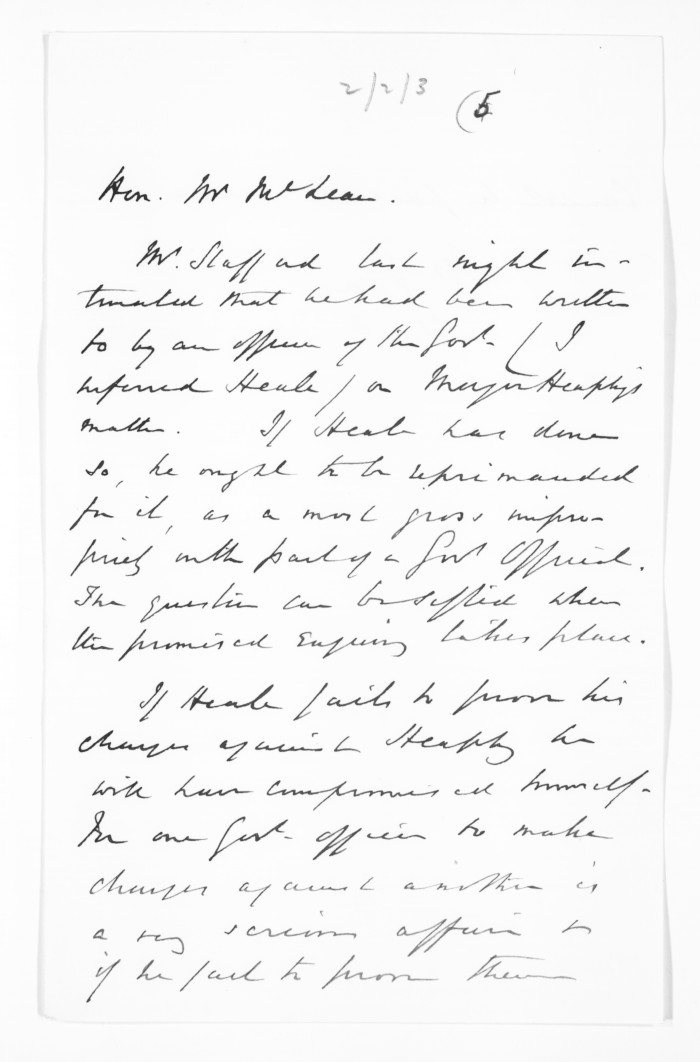 2/2/3
(5
Hon. Mr McLean.
Mr. Stafford last night in-
timated that he had been written
to by an officer of the Govt. ( I
inferred Heale ) on Major Heaphy's
matter. If Heale has done
so, he ought to be reprimanded
for it, as a most gross impro-
priety on the part of a Govt Official.
The question can be sifted when
the promised Enquiry takes place.
If Heale fails to prove his
charges against Heaphy he
will have compromised himself.
For one Govt. officer to make
charges against another is
a very serious affair &
if he fail to prove them